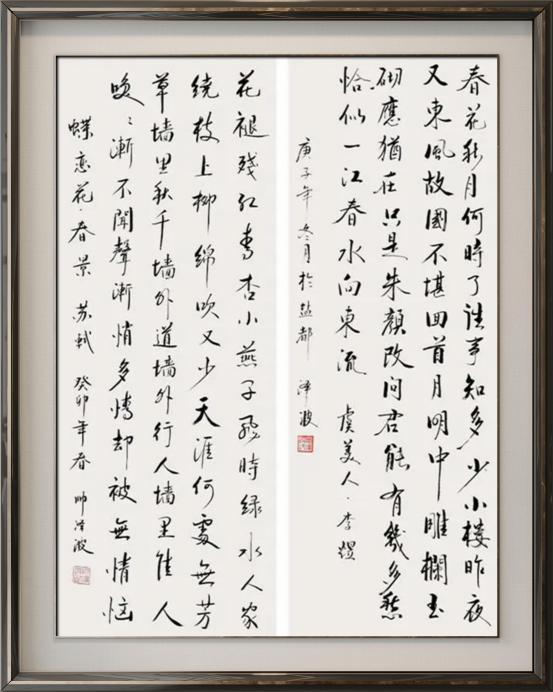 春花秋月何時了往事知多少小楼昨夜
又東風故國不堪回首月明中雕欄玉
砌應猶在只是朱顏改问君能有幾多愁
恰似一江春水向東流 虞美人·李煜
庚子年冬月於盐都 泽波
花褪殘红青杏小燕子飛時绿水人家
绕枝上柳綿吹又少天涯何處無芳
草墙里秋千墙外道墙外行人墙里佳人
咲〻漸不聞聲漸悄多情却被無情恼
蝶恋花·春景 苏軾 癸卯年春 帅泽波